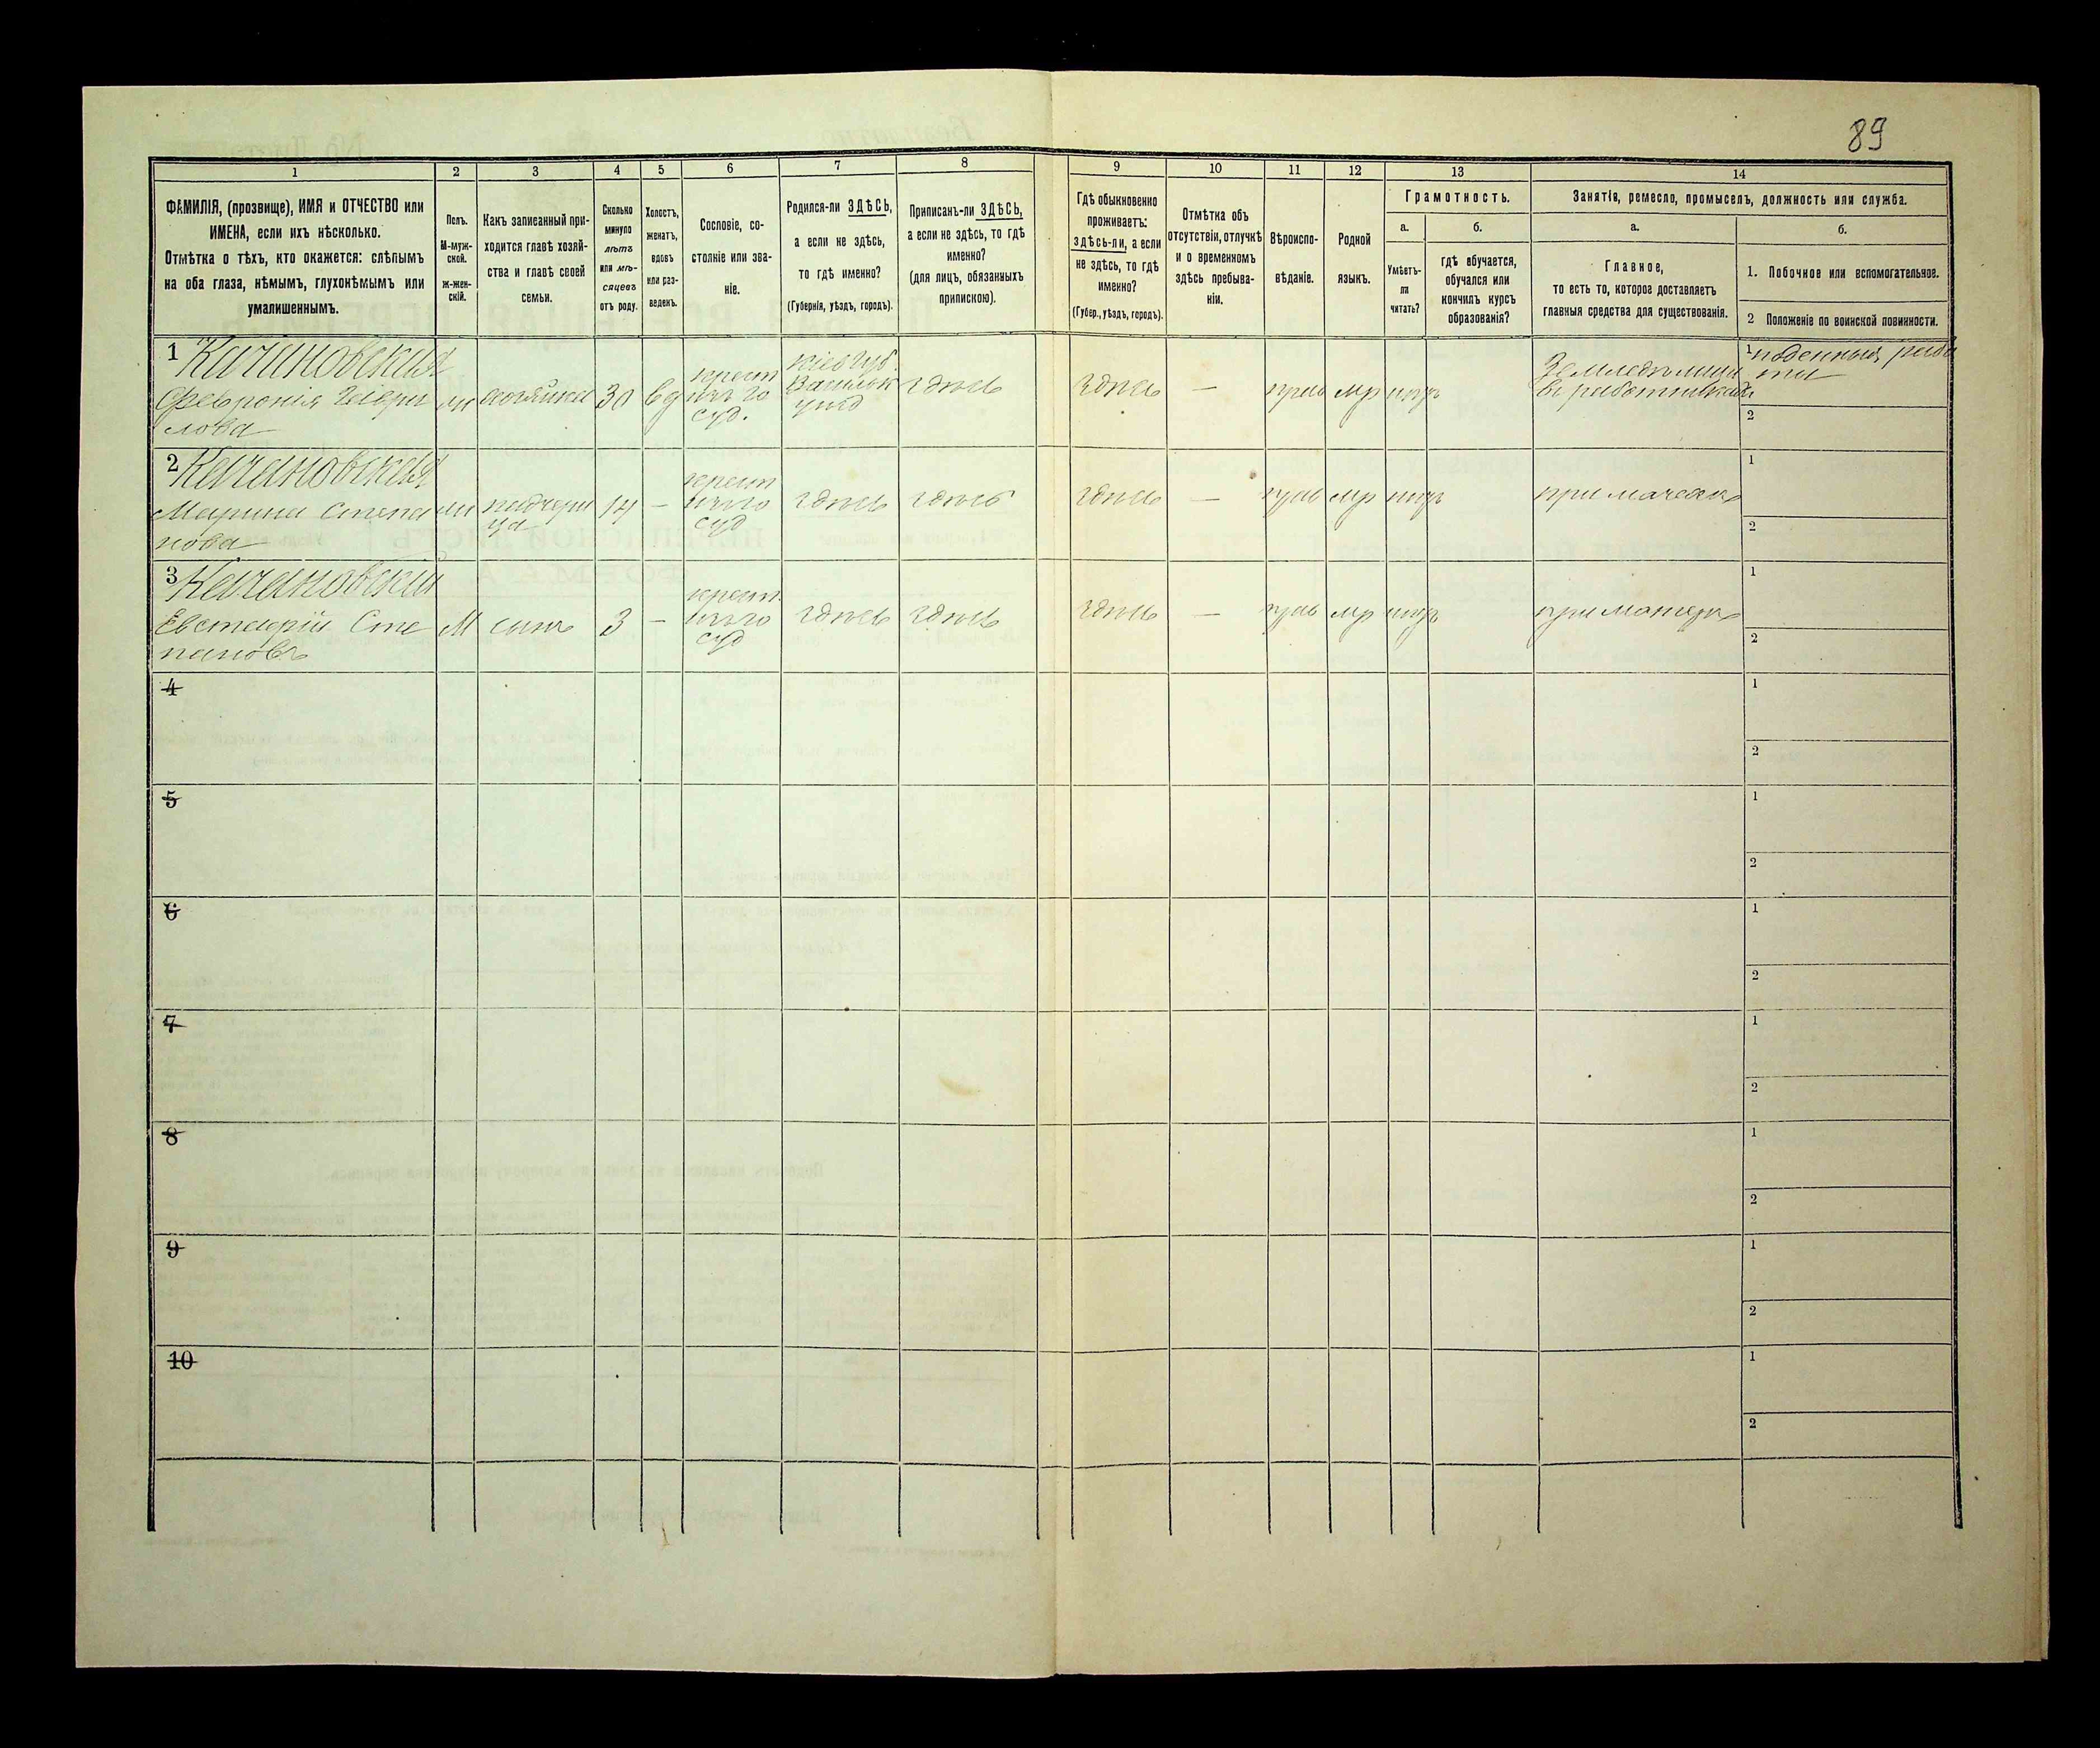 89
1
2
3
4
5
6
7
8
9
10
11
12
13
14
ФАМИЛІЯ, (прозвище), ИМЯ и ОТЧЕСТВО или
ИМЕНА, если ихъ нѣсколько.
Отмѣтка о тѣхъ, кто окажется: слѣпымъ
на оба глаза, нѣмымъ, глухонѣмымъ или
умалишеннымъ.
Полъ.
М-муж-
ской.
ж-жен-
скій.
Какъ записанный при-
ходится главѣ хозяй-
ства и главѣ своей
семьи.
Сколько
минуло
лѣтъ
или мѣ-
сяцевъ
отъ роду.
Холостъ,
женатъ,
вдовъ
или раз-
веденъ.
Сословіе, со-
стояніе или зва-
ніе.
Родился-ли ЗДѢСЬ,
а если не здѣсь,
то гдѣ именно?
(Губернія, уѣздъ, городъ).
Приписанъ-ли ЗДѢСЬ,
а если не здѣсь, то гдѣ
именно?
(для лицъ, обязанныхъ
припискою).
Гдѣ обыкновенно
проживаетъ:
здѣсь-ли, а если
не здѣсь, то гдѣ
именно?
(Губер., уѣздъ, городъ).
Отмѣтка объ
отсутствіи, отлучкѣ
и о временномъ
здѣсь пребыва-
ніи.
Вѣроиспо-
вѣданіе.
Родной
языкъ.
Грамотность.
а.
Умѣетъ-
ли
читать?
б.
гдѣ обучается,
обучался или
кончилъ курсъ
образованія?
Занятія, ремесло, промыселъ, должность или служба.
а.
Главное,
то есть то, которое доставляетъ
главныя средства для существованія.
б.
1. Побочное или вспомогательное.
2 Положеніе по воинской повинности.
1 Качановская
Февронія
лова
хозяйка
30
вд
крест
Кіев губ.
Васильк
уѣзд
здѣсь
здѣсь
—
прав
мр
нѣтъ
1 поденныя рабо
ты
2
2 Качановская
Марина Степа
нова
падчери
ца
14
—
крест
здѣсь
здѣсь
здѣсь
—
прав
мр
нѣтъ
при мачехѣ
1
2
3 Качановскій
Евстафій Сте
пановъ
М
сынъ
3
—
крест.
здѣсь
здѣсь
здѣсь
—
прав
мр
нѣтъ
при матери
1
2
4
1
2
5
1
2
6
1
2
7
1
2
8
1
2
9
1
2
10
1
2